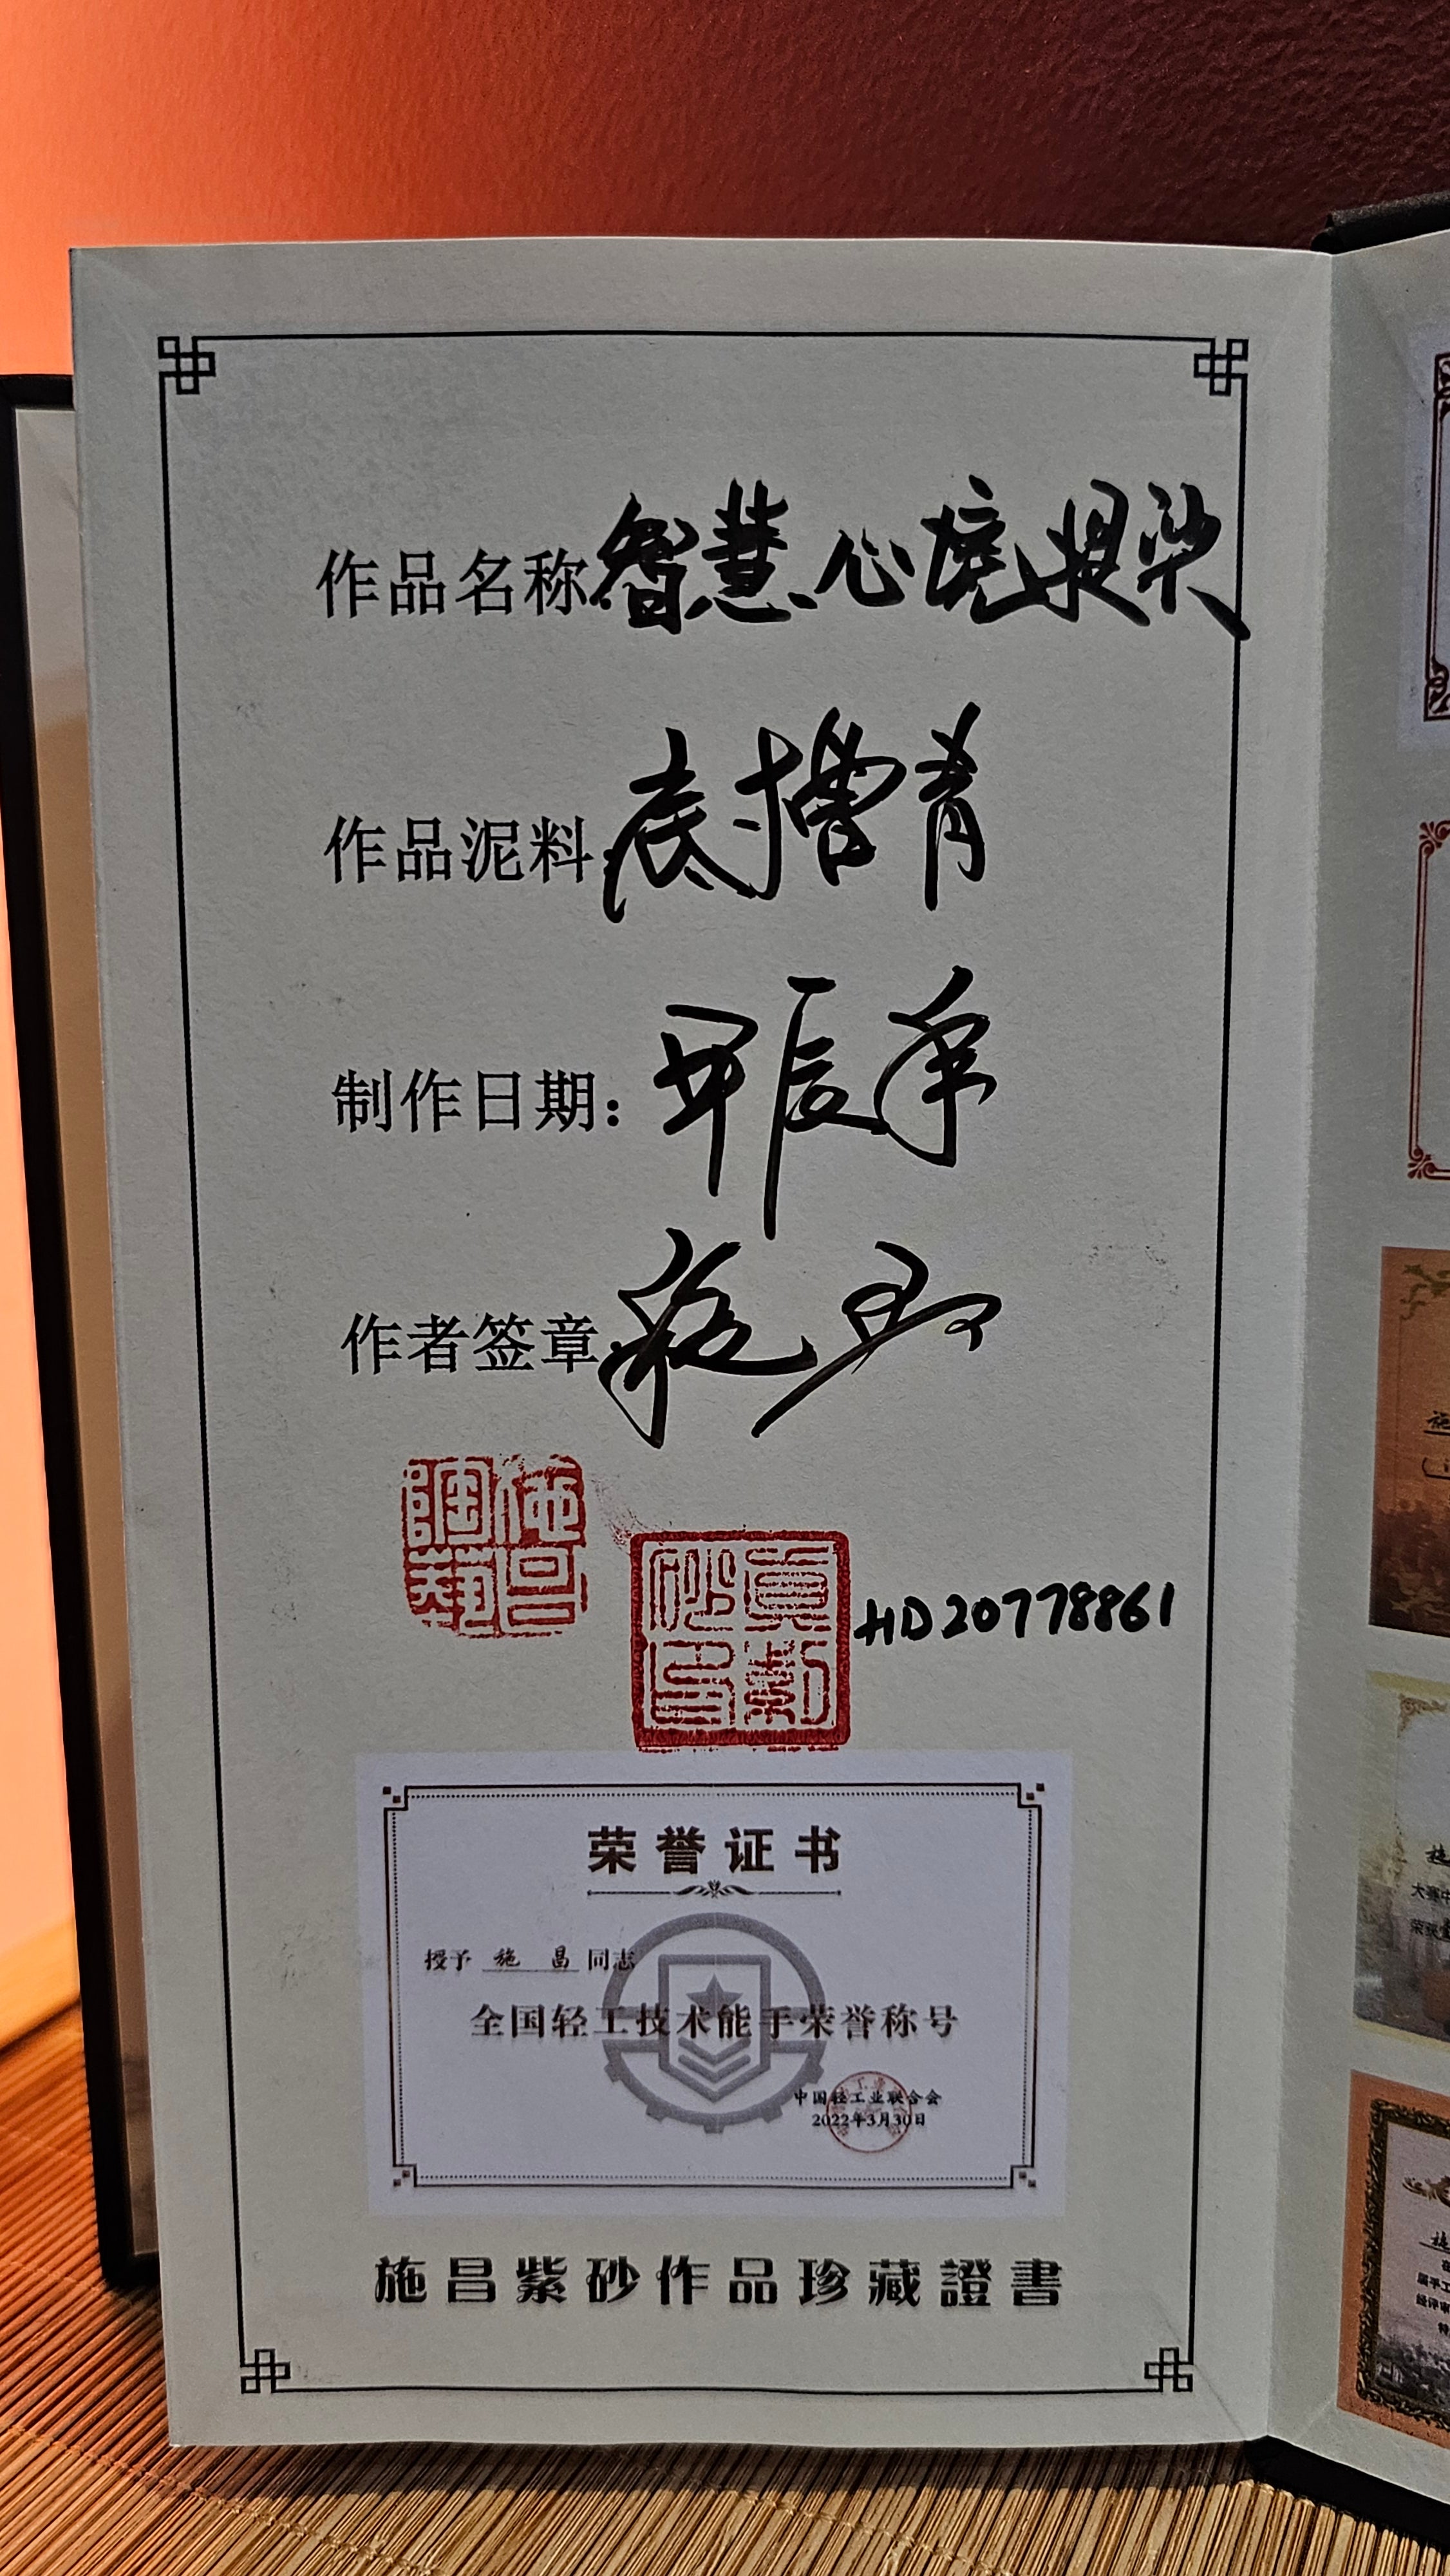 作品名称:智慧心境提梁
作品泥料:底槽青
制作日期:甲辰年
作者签章:施昌
施昌陶艺
真紫砂
HD20778861
荣誉证书
授予 施 昌 同志
全国轻工技术能手荣誉称号
中国轻工业联合会
2022年3月30日
施昌紫砂作品珍藏證書